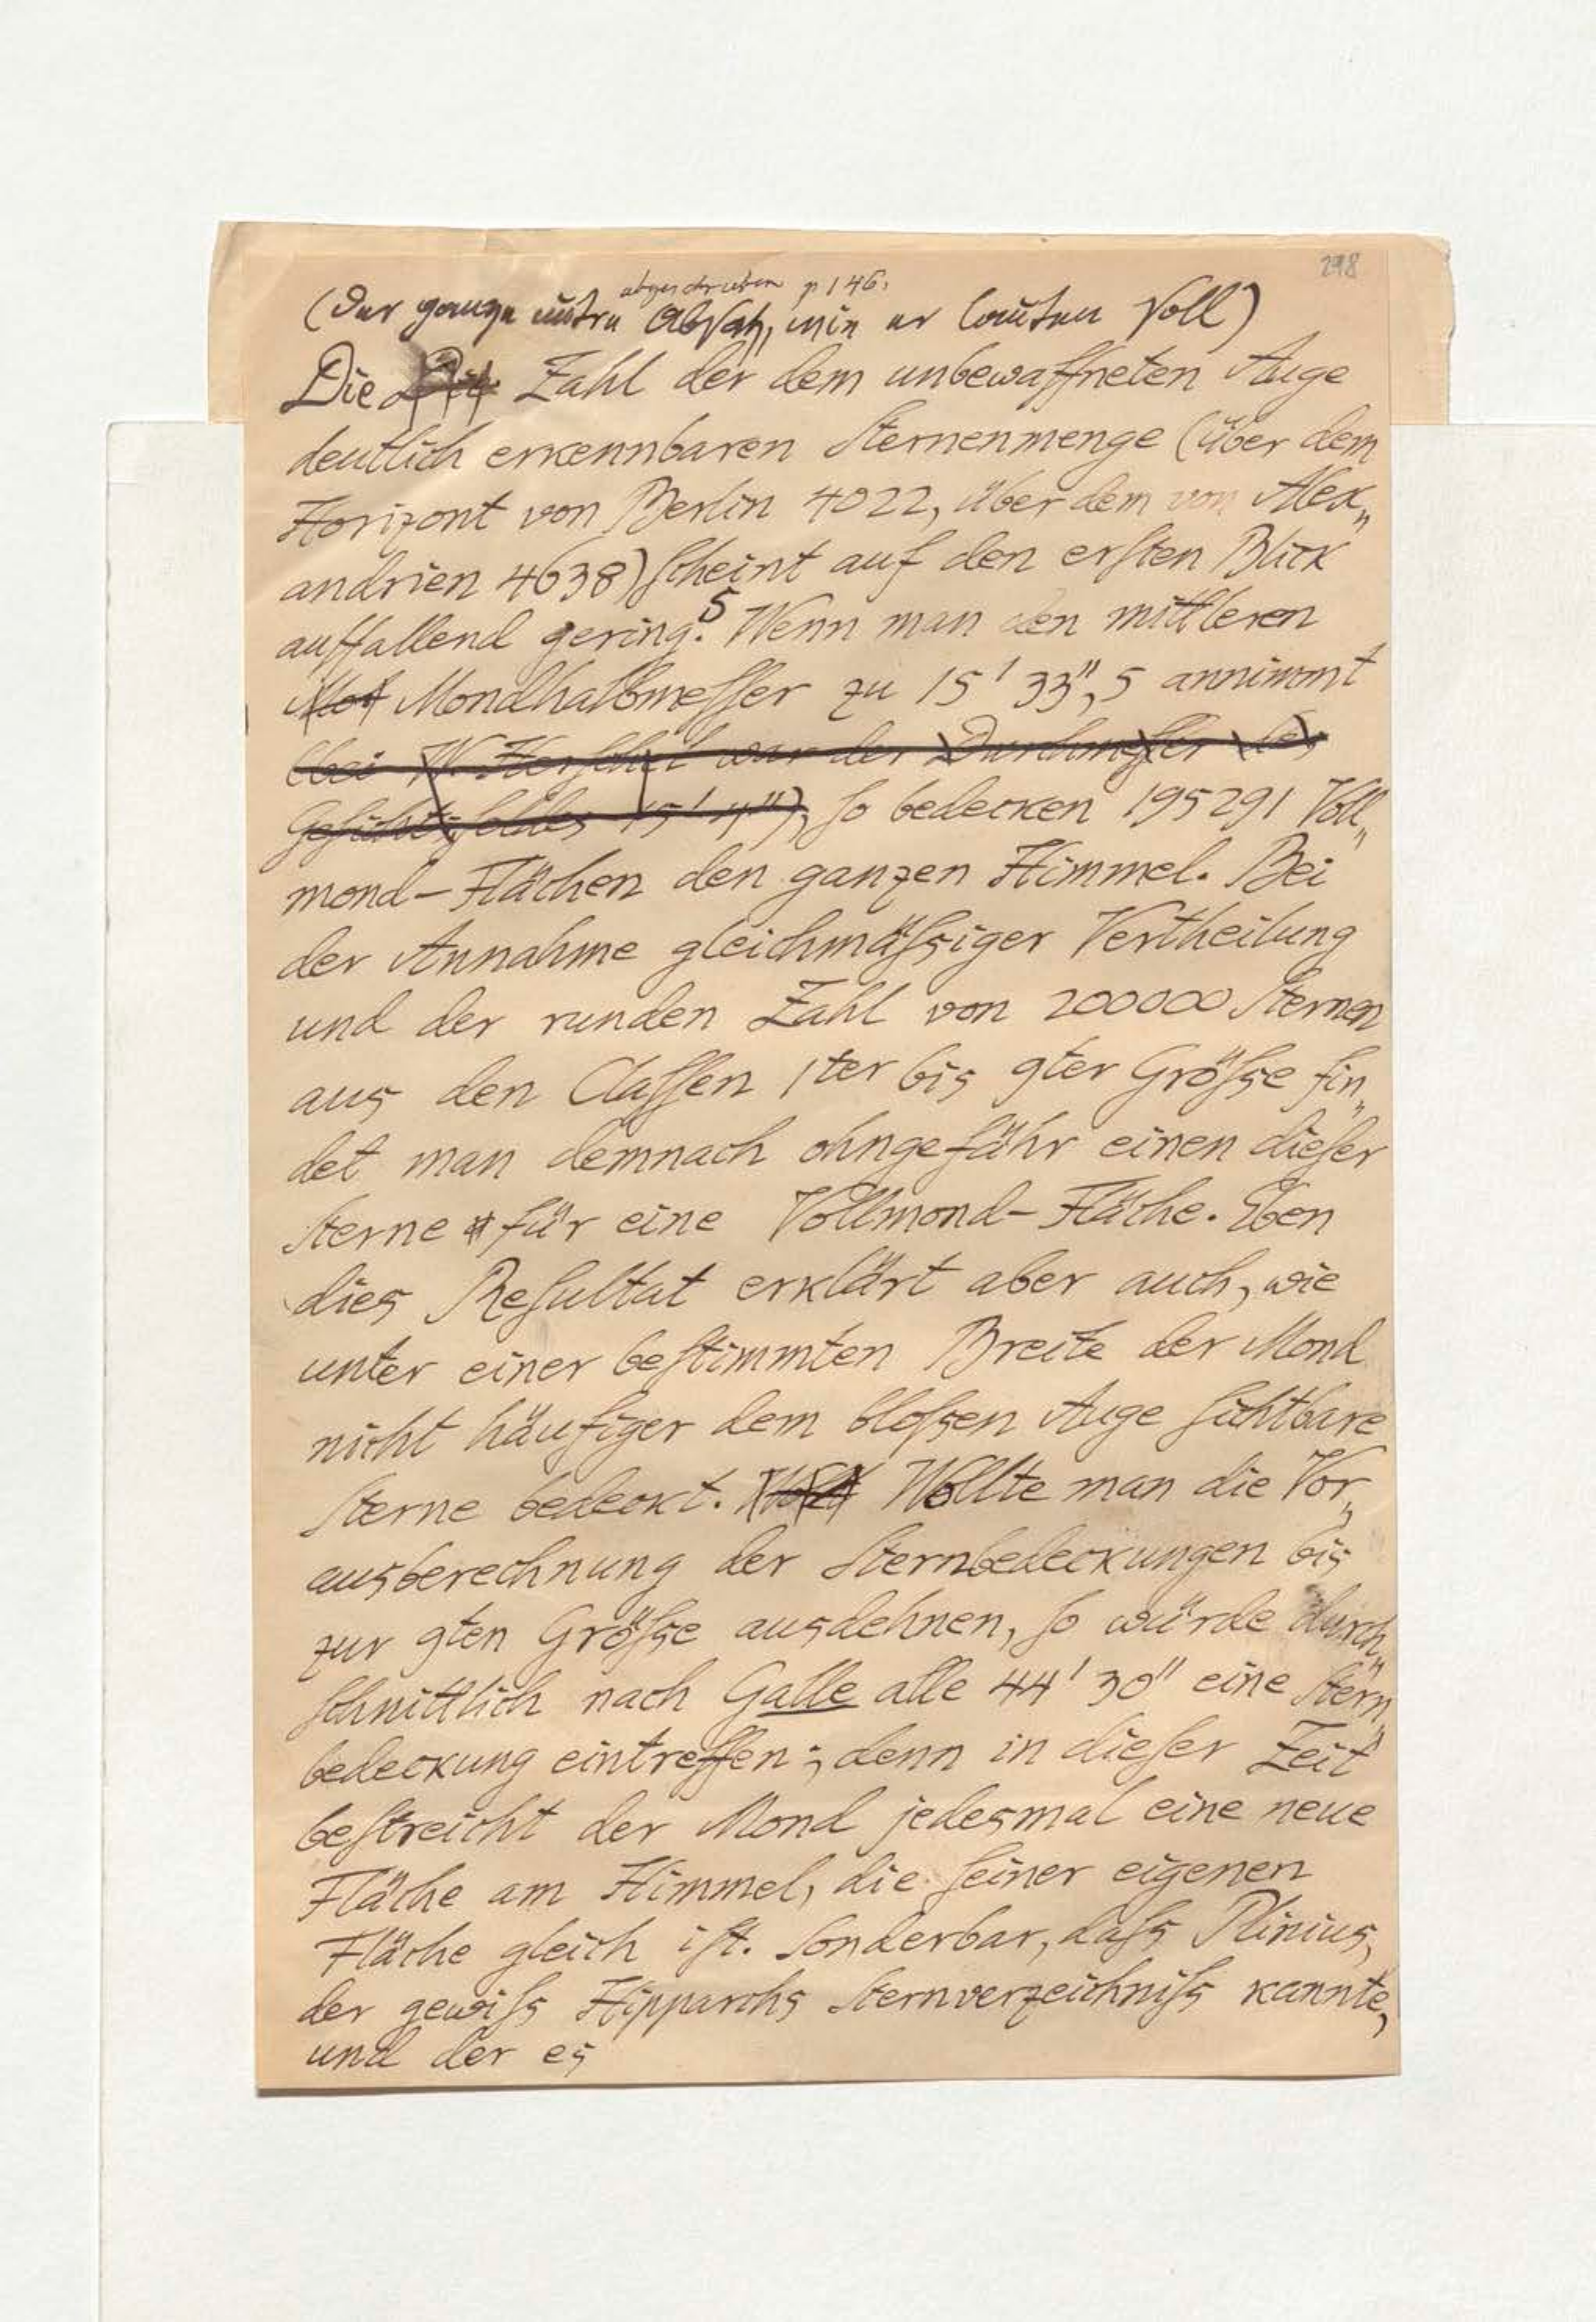 298
abgeschrieben p 146.
(Der ganze untre Absatz, wie er lauten soll)
Die Die Zahl der dem unbewaffneten Auge
deutlich erkennbaren Sternenmenge (über dem
Horizont von Berlin 4022, über dem von Alex„
andrien 4638) ſcheint auf den erſten Blick
auffallend gering.5 Wenn man den mittleren
Mon Mondhalbmeſſer zu 15' 33",5 annimmt
(bei W. Herſchel war der Durchmeſſer des
Geſichtsfeldes 15' 4"), ſo bedecken 195291 Voll„
mond-Flächen den ganzen Himmel. Bei
der Annahme gleichmäſsiger Vertheilung
und der runden Zahl von 200000 Sternen
aus den Claſſen 1ter bis 9ter Gröſse fin„
det man demnach ohngefähr einen dieſer
Sterne für eine Vollmond-Fläche. Eben
dies Reſultat erklärt aber auch, wie
unter einer beſtimmten Breite der Mond
nicht häufiger dem bloſsen Auge ſichtbare
Sterne bedeckt. Wollte man die Vor„
ausberechnung der Sternbedeckungen bis
zur 9ten Gröſse ausdehnen, ſo würde durch„
ſchnittlich nach Galle alle 44' 30" eine Stern„
bedeckung eintreffen; denn in dieſer Zeit
beſtreicht der Mond jedesmal eine neue
Fläche am Himmel, die ſeiner eigenen
Fläche gleich iſt. Sonderbar, daſs Plinius,
der gewiſs Hipparchs Sternverzeichniſs kannte,
und der es